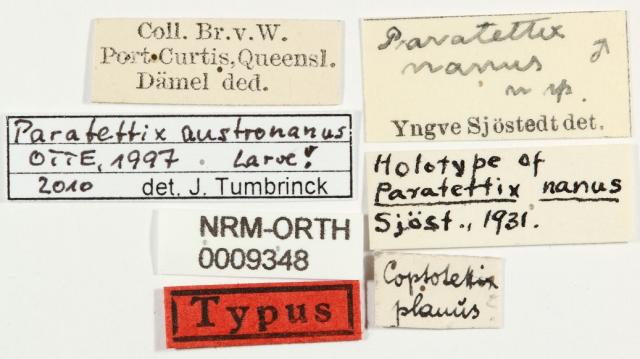 Coll. Br. v. W.
Port Curtis, Queensl.
Dämel ded.
Paratettix ♂
nanus
n sp.
Yngve Sjöstedt det.
Paratettix austronanus
OTTE, 1997 . Larve!
2010 det. J. Tumbrinck
Holotype of
Paratettix nanus
Sjöst., 1931.
NRM-ORTH
0009348
Typus
Coptotettix
planus